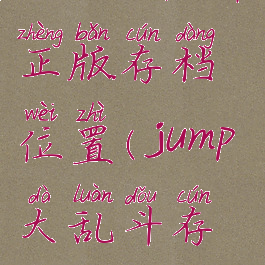 zhèng bǎn cún dàng
正版存档
wèi zhì
位置(jump
dà luàn dǒu cún
大乱斗存